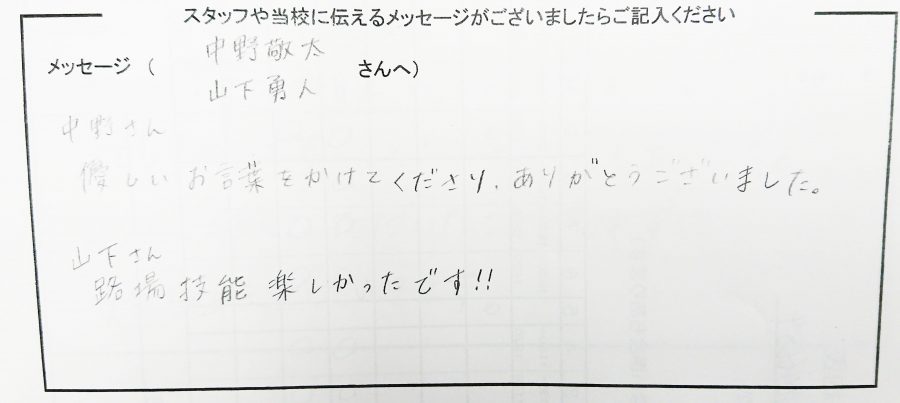 スタッフや当校に伝えるメッセージがございましたらご記入ください
中野敬太
メッセージ ( さんへ)
山下勇人
中野さん
優しいお言葉をかけてくださり、ありがとうございました。
山下さん
路場技能楽しかったです!!